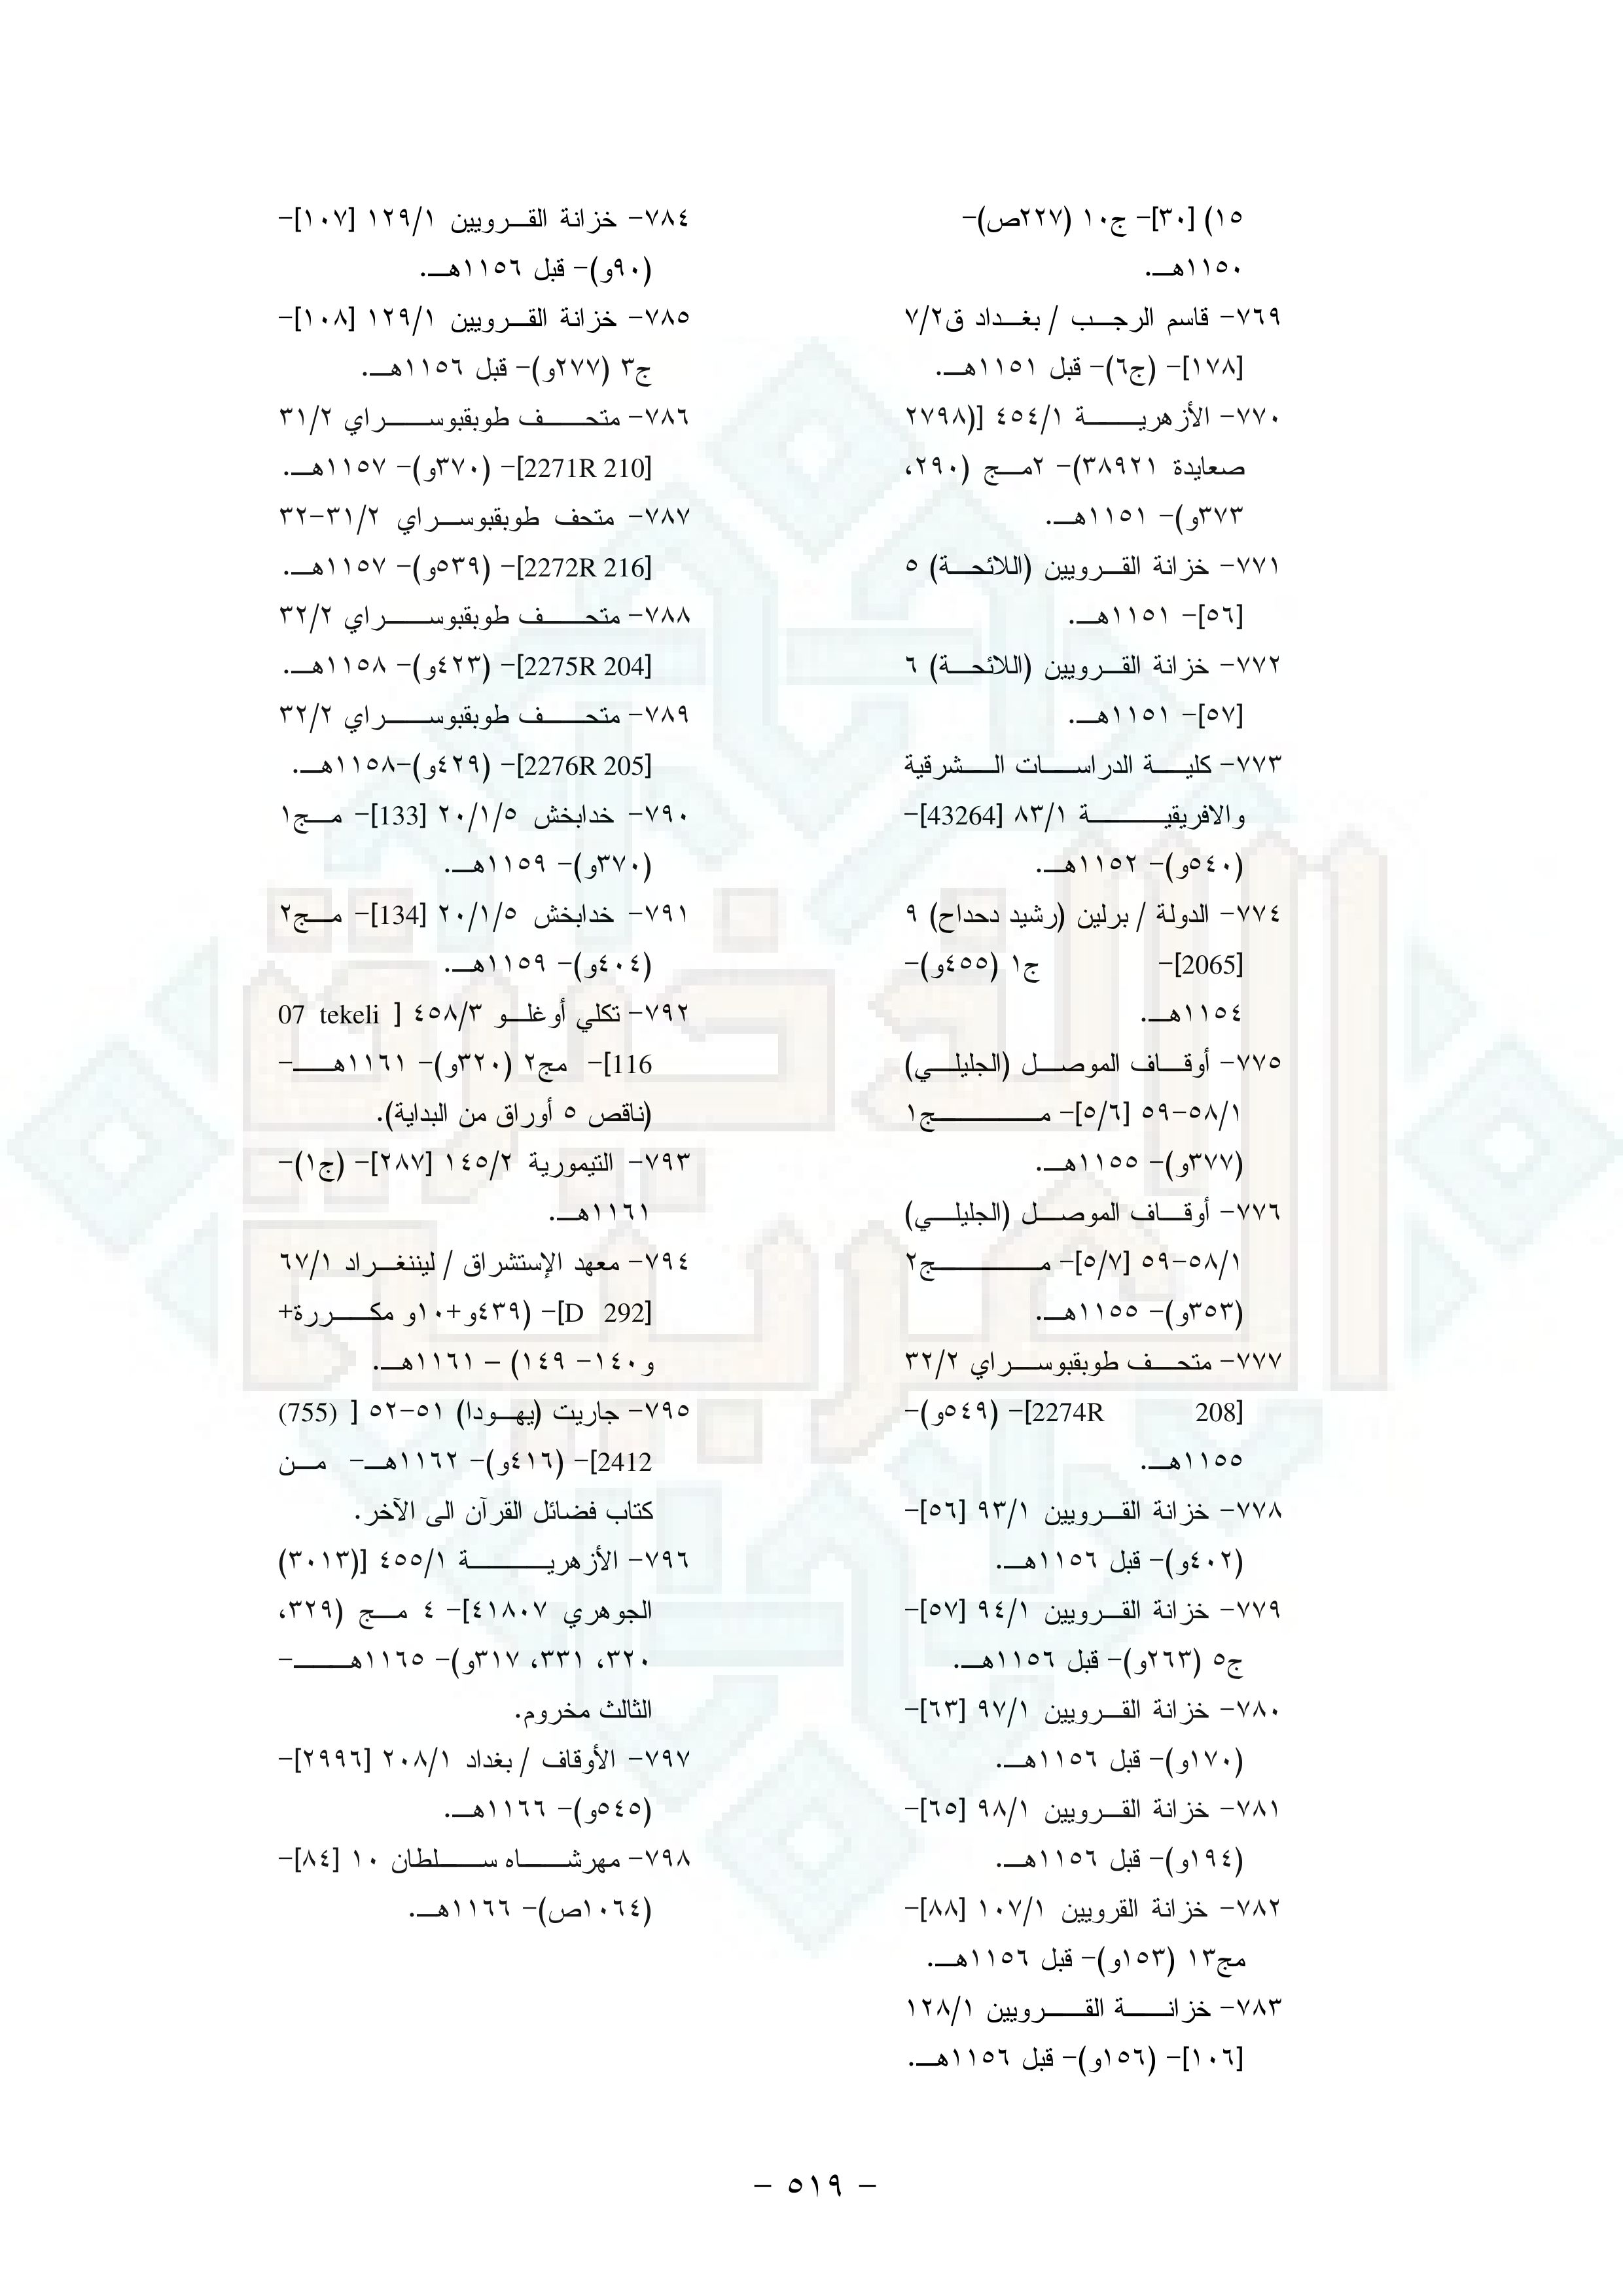 ١٥) [٣٠]- ج١٠ (٢٢٧ص)-
١١٥٠هـ.
٧٦٩- قاسم الرجب / بغداد ق٧/٢
[١٧٨]- (ج٦)- قبل ١١٥١هـ.
٧٧٠- الأزهرية ٤٥٤/١ [(٢٧٩٨
صعايدة ٣٨٩٢١)- ٢مج (٢٩٠،
٣٧٣و)- ١١٥١هـ.
٧٧١- خزانة القرويين (اللائحة) ٥
[٥٦]- ١١٥١هـ.
٧٧٢- خزانة القرويين (اللائحة) ٦
[٥٧]- ١١٥١هـ.
٧٧٣- كلية الدراسات الشرقية
والافريقية ٨٣/١ [43264]-
(٥٤٠و)- ١١٥٢هـ.
٧٧٤- الدولة / برلين (رشيد دحداح) ٩
[2065]- ج١ (٤٥٥و)-
١١٥٤هـ.
٧٧٥- أوقاف الموصل (الجليلي)
٥٨/١-٥٩ [٥/٦]- مج١
(٣٧٧و)- ١١٥٥هـ.
٧٧٦- أوقاف الموصل (الجليلي)
٥٨/١-٥٩ [٥/٧]- مج٢
(٣٥٣و)- ١١٥٥هـ.
٧٧٧- متحف طوبقبوسراي ٣٢/٢
[2274R 208]- (٥٤٩و)-
١١٥٥هـ.
٧٧٨- خزانة القرويين ٩٣/١ [٥٦]-
(٤٠٢و)- قبل ١١٥٦هـ.
٧٧٩- خزانة القرويين ٩٤/١ [٥٧]-
ج٥ (٢٦٣و)- قبل ١١٥٦هـ.
٧٨٠- خزانة القرويين ٩٧/١ [٦٣]-
(١٧٠و)- قبل ١١٥٦هـ.
٧٨١- خزانة القرويين ٩٨/١ [٦٥]-
(١٩٤و)- قبل ١١٥٦هـ.
٧٨٢- خزانة القرويين ١٠٧/١ [٨٨]-
مج١٣ (١٥٣و)- قبل ١١٥٦هـ.
٧٨٣- خزانة القرويين ١٢٨/١
[١٠٦]- (١٥٦و)- قبل ١١٥٦هـ.
٧٨٤- خزانة القرويين ١٢٩/١ [١٠٧]-
(٩٠و)- قبل ١١٥٦هـ.
٧٨٥- خزانة القرويين ١٢٩/١ [١٠٨]-
ج٣ (٢٧٧و)- قبل ١١٥٦هـ.
٧٨٦- متحف طوبقبوسراي ٣١/٢
[2271R 210]- (٣٧٠و)- ١١٥٧هـ.
٧٨٧- متحف طوبقبوسراي ٣١/٢-٣٢
[2272R 216]- (٥٣٩و)- ١١٥٧هـ.
٧٨٨- متحف طوبقبوسراي ٣٢/٢
[2275R 204]- (٤٢٣و)- ١١٥٨هـ.
٧٨٩- متحف طوبقبوسراي ٣٢/٢
[2276R 205]- (٤٢٩و)-١١٥٨هـ.
٧٩٠- خدابخش ٢٠/١/٥ [133]- مج١
(٣٧٠و)- ١١٥٩هـ.
٧٩١- خدابخش ٢٠/١/٥ [134]- مج٢
(٤٠٤و)- ١١٥٩هـ.
٧٩٢- تكلي أوغلو ٤٥٨/٣ [ 07 tekeli
116]- مج٢ (٣٢٠و)- ١١٦١هـ-
(ناقص ٥ أوراق من البداية).
٧٩٣- التيمورية ١٤٥/٢ [٢٨٧]- (ج١)-
١١٦١هـ.
٧٩٤- معهد الإستشراق / ليننغراد ٦٧/١
[D 292]- (٤٣٩و+١٠و مكررة+
و١٤٠- ١٤٩) – ١١٦١هـ.
٧٩٥- جاريت (يهودا) ٥١-٥٢ [ (755)
2412]- (٤١٦و)- ١١٦٢هـ- من
كتاب فضائل القرآن الى الآخر.
٧٩٦- الأزهرية ٤٥٥/١ [(٣٠١٣)
الجوهري ٤١٨٠٧]- ٤ مج (٣٢٩،
٣٢٠، ٣٣١، ٣١٧و)- ١١٦٥هـ-
الثالث مخروم.
٧٩٧- الأوقاف / بغداد ٢٠٨/١ [٢٩٩٦]-
(٥٤٥و)- ١١٦٦هـ.
٧٩٨- مهرشاه سلطان ١٠ [٨٤]-
(١٠٦٤ص)- ١١٦٦هـ.
- ٥١٩ -